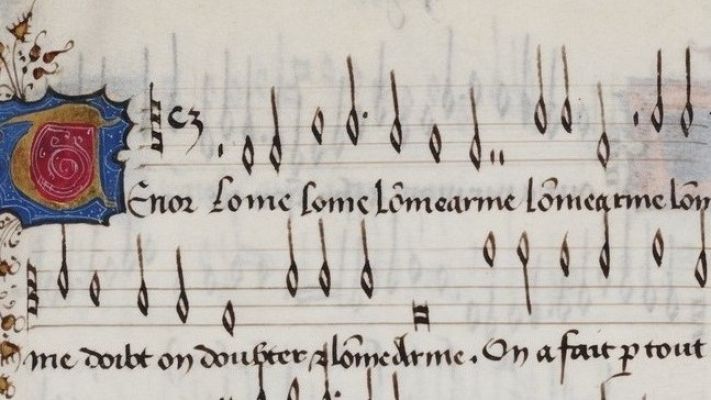 Tenor Lome Lome Lõmearme lõmearme lõm
me doibt on doubter & lõmearme. On a fait p tout